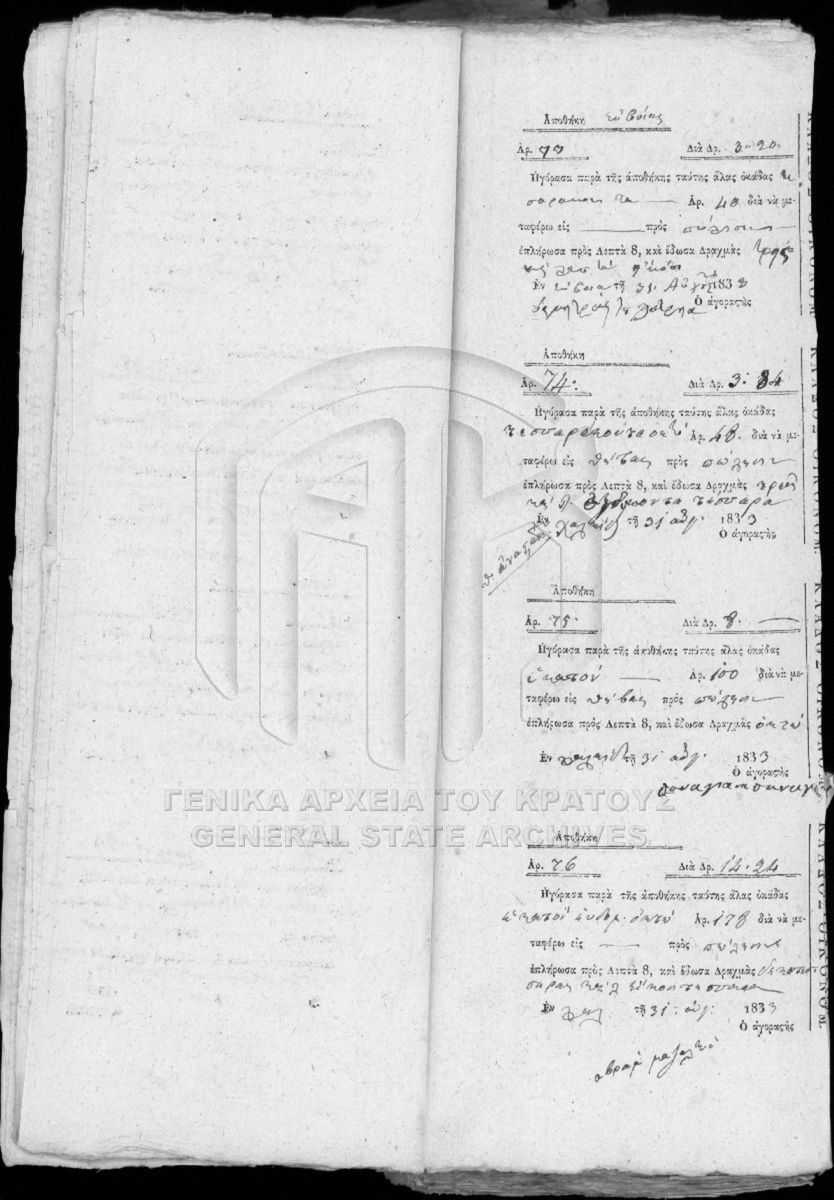 Ἀποθήκη εὐβοίας
Ἀρ. 73 Διὰ Δρ. 3·20
Ἠγόρασα παρὰ τῆς ἀποθήκης ταύτης ἅλας ὀκάδας
Ἀρ. 40 διὰ νὰ με-
ταφέρω εἰς — πρὸς πώλησιν
ἐπλήρωσα πρὸς Λεπτὰ 8, καὶ ἔδωσα Δραχμὰς τρεῖς
Ἐν τῇ 31 1833
Ὁ ἀγοραστής
Ἀποθήκη
Ἀρ. 74 Διὰ Δρ. 3·84
Ἠγόρασα παρὰ τῆς ἀποθήκης ταύτης ἅλας ὀκάδας
τεσσαρακονταοκτὼ Ἀρ. 48 διὰ νὰ με-
ταφέρω εἰς θήβας πρὸς πώλησιν
ἐπλήρωσα πρὸς Λεπτὰ 8, καὶ ἔδωσα Δραχμὰς τρεῖς
καὶ λ. ὀγδοῆντα τέσσαρα
Ἐν τῇ 31 αὐγ. 1833
Ὁ ἀγοραστής
Ἀποθήκη
Ἀρ. 75 Διὰ Δρ. 8 —
Ἠγόρασα παρὰ τῆς ἀποθήκης ταύτης ἅλας ὀκάδας
ἑκατὸν — Ἀρ. 100 διὰ νὰ με-
ταφέρω εἰς θήβας πρὸς πώλησιν
ἐπλήρωσα πρὸς Λεπτὰ 8, καὶ ἔδωσα Δραχμὰς ὀκτὼ
Ἐν τῇ 31 αὐγ. 1833
Ὁ ἀγοραστής
ΓΕΝΙΚΑ ΑΡΧΕΙΑ ΤΟΥ ΚΡΑΤΟΥΣ
GENERAL STATE ARCHIVES
Ἀποθήκη
Ἀρ. 76 Διὰ Δρ. 14·24
Ἠγόρασα παρὰ τῆς ἀποθήκης ταύτης ἅλας ὀκάδας
ἑκατὸν ἑβδομ. ὀκτὼ Ἀρ. 178 διὰ νὰ με-
ταφέρω εἰς — πρὸς πώλησιν
ἐπλήρωσα πρὸς Λεπτὰ 8, καὶ ἔδωσα Δραχμὰς δεκατέσ
σαρας καὶ λ εἴκοσι τέσσαρα
Ἐν τῇ 31 αὐγ. 1833
Ὁ ἀγοραστής